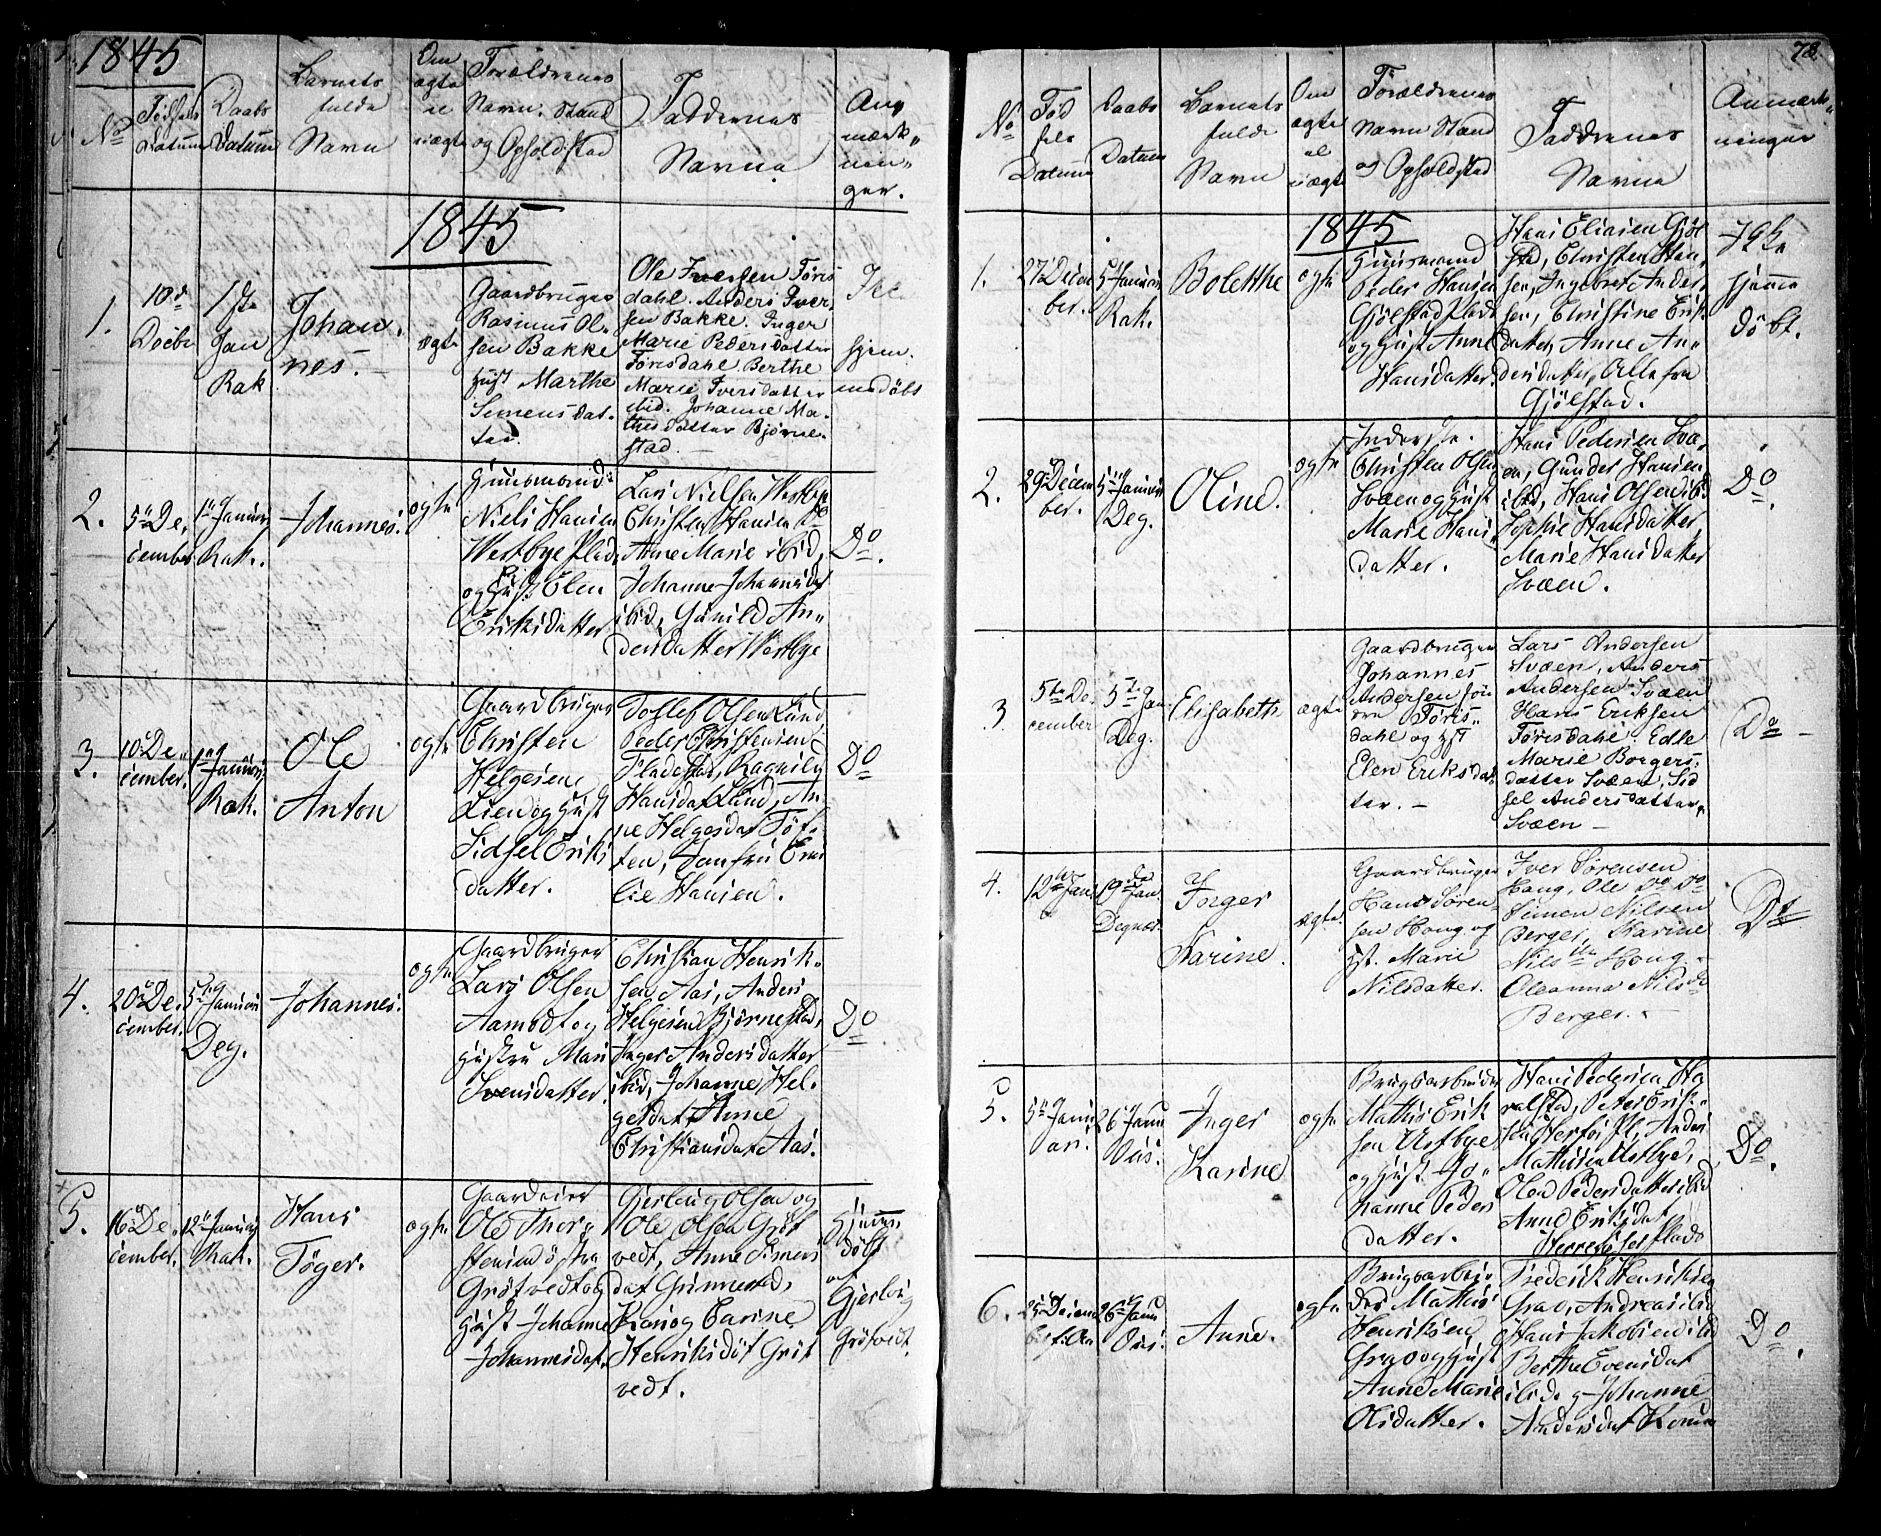 1845
No
Fødsels Datum
Daabs Datum
Barnets fulde Navn
Om ægte el uægte
Forældrenes Navn, Stand og Opholdsted
Faddernes Navne
Anmærkninger.
1845
1.
10de Decbr
1ste Jan Rak
Johannes.
ægte
Gaardbruger
Rasmus Ol-
sen Bakke
Hust Marthe
Simensdat-
ter.
Ole Iversen Töris
dahl. Anders Iver-
sen Bakke. Inger
Marie Pedersdatter
Torisdahl Berthe
Marie Iversdatter
ibid. Johanne Ma-
thisdatter Björne-
stad.
hjem-
medöbt
2.
5te De-
cember
1te Januar
Rak.
Johannes.
ægte
Huusmand
Niels Hansen
Westbye Plads
og Hust Elen
Eriksdatter
Lars Nielsen Westbye
Christen Hansen Do
Anne Marie ibid,
Johanne Johannesdat
ibid, Gunild An-
dersdatter Westbye
Do.
3.
10de De-
cember.
1te Januar
Rak.
Ole
Anton
ægte
Gaardbruger
Christen
Helgesen
Lien og Hust
Sidsel Eriks
datter.
Detlef Olsen Lund,
Peder Christensen
Pladsen, Ragnild
Hansdat Lund, An-
ne Helgesdat Töf-
ten, Jomfru Emi
lie Hansen.
Do
4.
20de De-
cember.
5te Januar
Deg.
Johannes.
ægte
Gaardbruger
Lars Olsen
Aamodt og
Hustru Mari
Svensdatter.
Christian Henrik-
sen Aas, Anders
Helgesen Björnestad,
Inger Andersdatter
ibid, Johanne Hel-
gesdat, Anne
Christiansdat Aas.
Do
5.
16de De-
cember.
12te Januar
Rak.
Hans
Töger.
ægte
Gaardeier
Ole Thor-
stensen östre
Grötvedt og
Hust Johanne
Johannesdat.
Gjerlaug Olsen og
Ole Olsen Gröt
vedt, Anne Simens
dat Grimerud,
Kari og Carine
Henriksdöt Gröt
vedt.
Hjemme
döbt
af
Gjerlaug
Grötvedt.
78.
No
Fød
sels
Datum
Daabs
Datum
Barnets
fulde
Navn
Om
ægte
el
uægte
Forældrenes
Navn Stand
og Opholdsted
Faddernes
Navne
Anmærk-
ninger
1845
1.
27 Decem
ber.
5te Januar
Rak.
Bolethe
ægte
Huusmand
Peder Hansen
Gjölstad Plads
og Hust Anne
Hansdatter.
Hans Eliasen Gjöl
stad, Christen Han-
sen, Ingebret Ander-
sen, Christine Erik-
datter, Anne An-
dersdatter, Alle fra
Gjölstad.
hjemme
döbt.
2.
29de Decem
ber.
5te Januar
Deg.
Oline.
ægte
Inderste.
Christen Olsen
Svæen og Hust
Marie Hans-
datter.
Hans Pedersen Svæ-
en, Gunder Hansen
ibid, Hans Olsen ibid
Sophie Hansdatter,
Marie Hansdatter
Svæen.
Do.
3
5te De-
cember
5te Jan.
Deg.
Elisabeth
ægte
Gaardbruger
Johannes
Andersen sön
dre Töris-
dahl og Hst
Elen Eriksdat
ter.
Lars Andersen
Svæen, Anders
Andersen Svæen
Hans Eriksen
Törisdahl Edle
Marie Borgers-
datter Svæen, Sid
sel Andersdatter
Svæen
Do
4.
12te Jan.
19de Jan.
Degnæs.
Inger
Karine.
ægte.
Gaardbruger
Hans Sören-
sen Houg og
Hst. Marie
Nilsdatter.
Iver Sörensen
Houg, Ole Do Do
Simen Nilsen
Berger, Karine
Nils Houg.
Oleanna Nilsd
Berger.
Do
5.
5te Janu
ari.
26de Janu
Øiis.
Inger
Karine
ægte
Brugsarbeider
Mathis Erik
sen Ustbye
og Hust Jo-
hanne Peders
datter.
Hans Pedersen Ha
ralstad, Peter Erik-
sen Herresös Pl, Anders
Mathisen Ustbye,
Olea Pedersdatter ibid
Anne Eriksdat
Herresös Plads
Do.
6.
25de Decem
ber
26de Janu
Øiis.
Anne.
ægte
Brugsarbei
der Mathis
Henriksen
Grav og Hust
Anne Marie
Olsdatter.
Frederik Henriksen
Grav, Andreas ibid
Hans Jakobsen ibid
Berthe Evensdat
ibid. og Johanne
Andersdat
Do.